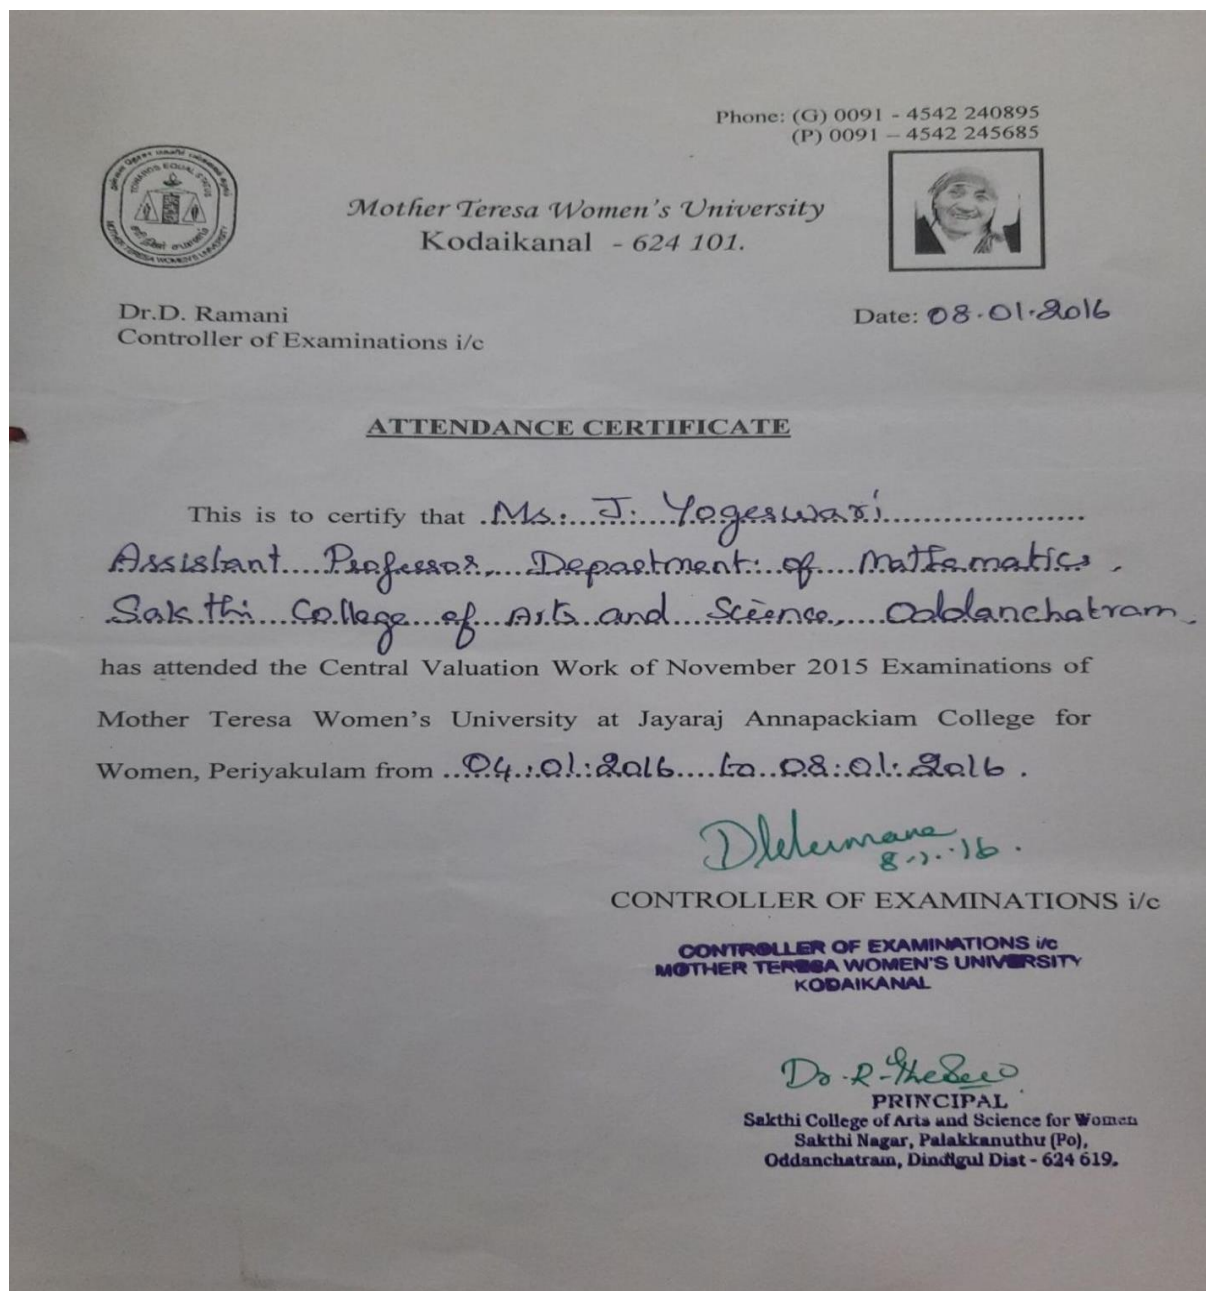 Phone: (G) 0091 - 4542 240895
(P) 0091 – 4542 245685
TOWARDS EQUAL STATUS
MOTHER TERESA WOMEN'S UNIVERSITY
Mother Teresa Women's University
Kodaikanal - 624 101.
Dr.D. Ramani
Controller of Examinations i/c
Date: 08.01.2016
ATTENDANCE CERTIFICATE
This is to certify that Ms. J. Yogeswari
Assistant Professor, Department of Mathematics,
Sakthi College of Arts and Science, Oddanchatram,
has attended the Central Valuation Work of November 2015 Examinations of
Mother Teresa Women's University at Jayaraj Annapackiam College for
Women, Periyakulam from 04.01.2016 to 08.01.2016.
8.1.16.
CONTROLLER OF EXAMINATIONS i/c
CONTROLLER OF EXAMINATIONS i/c
MOTHER TERESA WOMEN'S UNIVERSITY
KODAIKANAL
PRINCIPAL
Sakthi College of Arts and Science for Women
Sakthi Nagar, Palakkanuthu (Po),
Oddanchatram, Dindigul Dist - 624 619.